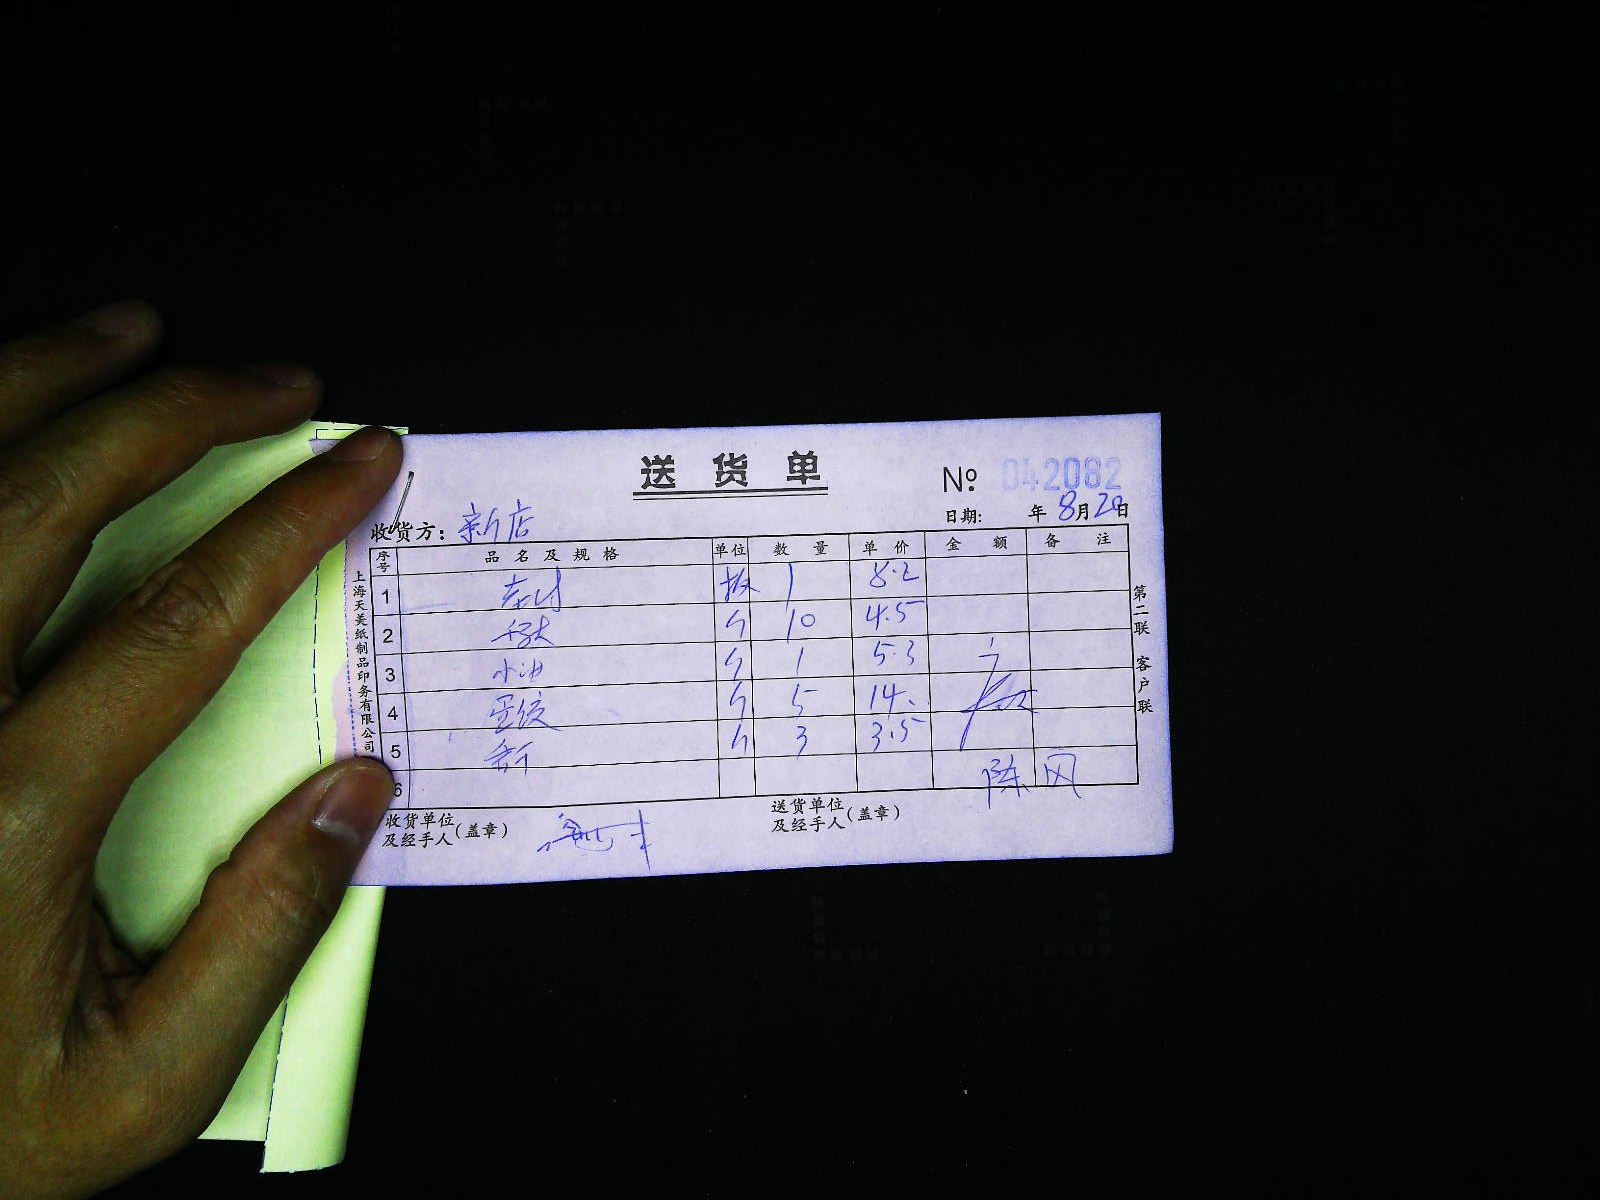 送货单
№ 042082
收货方: 新店
日期: 年8月20日
序号 品名及规格 单位 数量 单价 金额 备注
1 板 1 8.2
2 10 4.5
3 小油 1 5.3
4 5 14.
5 3 3.5
6
收货单位及经手人(盖章)
送货单位及经手人(盖章) 陈风
上海天美纸制品印务有限公司
第二联 客户联